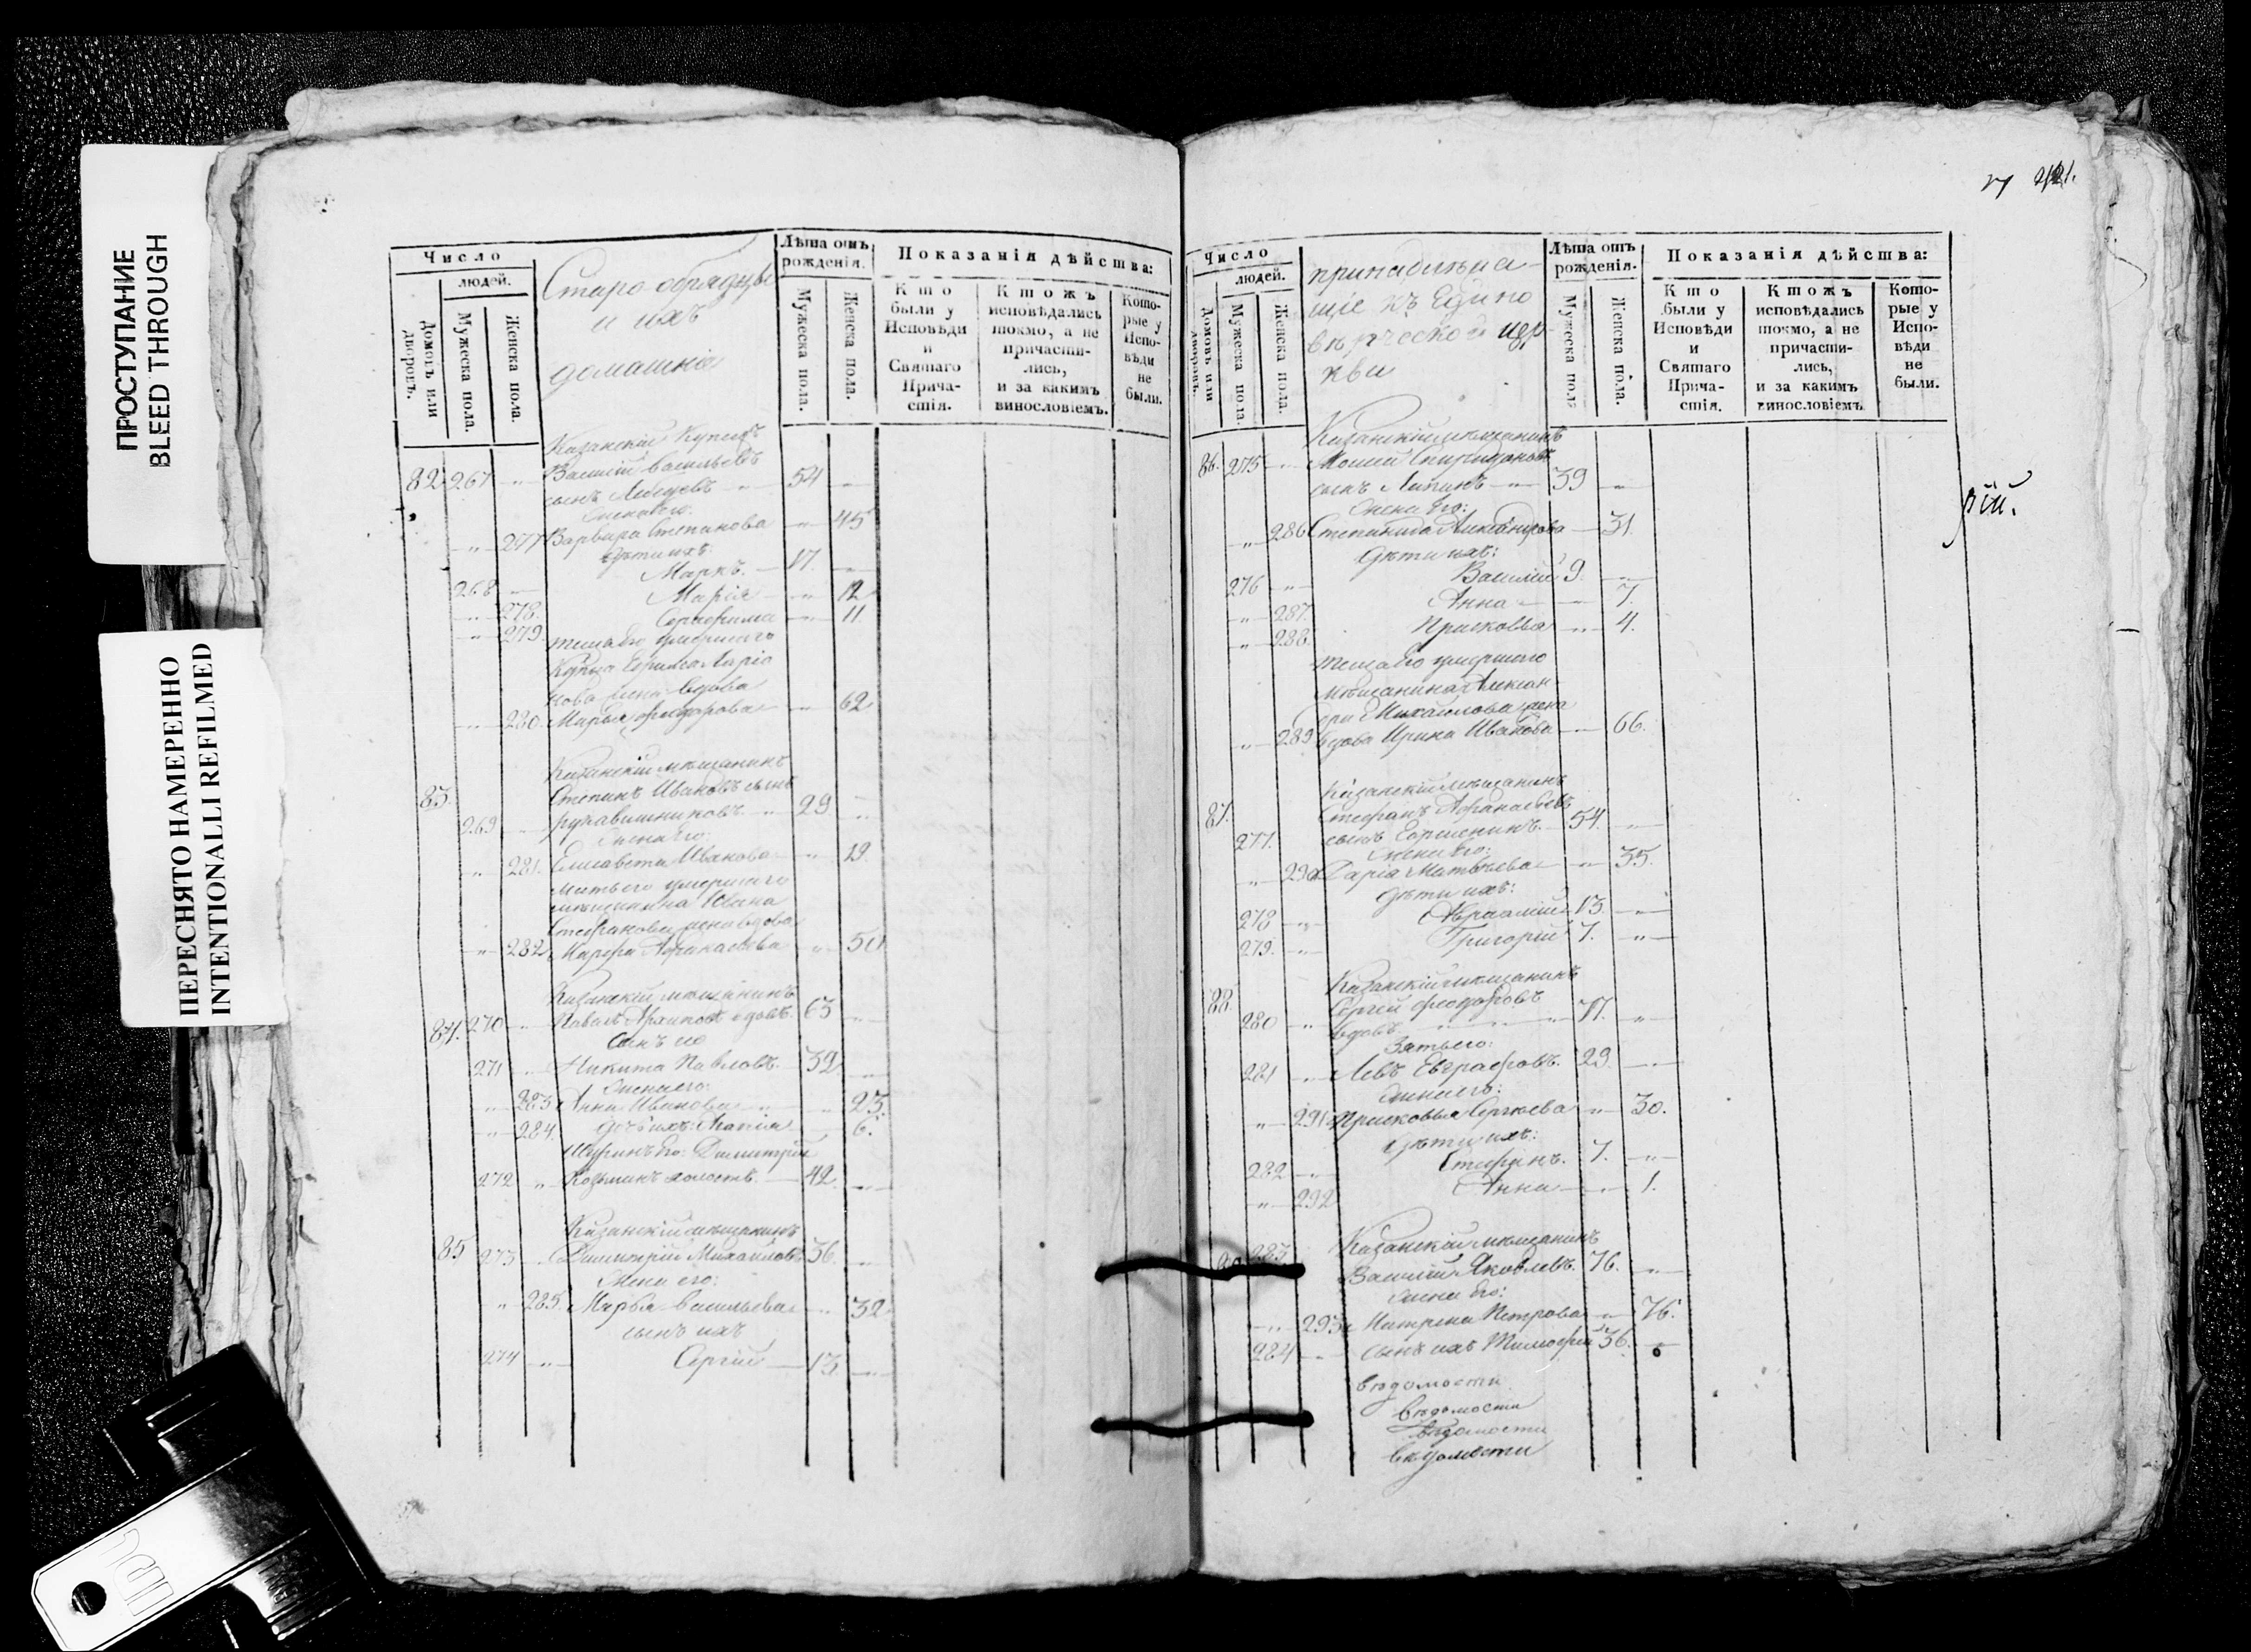 ПРОСТУПАНИЕ
BLEED THROUGH
ПЕРЕСНЯТО НАМЕРЕННО
INTENTIONALLI REFILMED
Число
людей.
Домовъ или дворовъ.
Мужеска пола.
Женска пола.
Старо обрядцы
и ихъ
домашніе
Лѣта отъ рожденія.
Мужеска пола.
Женска пола.
Показанія дѣйства:
Кто были у Исповѣди и Святаго Прича-стія.
Ктожъ исповѣдались токмо, а не причасти-лись, и за какимъ винословіемъ.
Кото-рые у Испо-вѣди не были.
Казанскій Купецъ
82 267 „ Василій Васильевъ
сынъ „ 54 „
Жена его:
„ 277 Варвара Степанова „ 45
Дѣти ихъ:
268 „ Маркъ. 17. „
„ 278. Марія „ 12
„ 279. Серафима „ 11
теща его умершаго
Купца Ларіо
нова жена вдова
„ 280. Марья Феодорова „ 62
Казанскій мѣщанинъ
83. Степанъ Ивановъ сынъ
269 „ рукавишниковъ „ 29 „
Жена его:
„ 281. Елисавета Иванова „ 19.
Мать его умершаго
мѣщанина Ивана
Стефанова жена вдова
„ 282 Марфа Афанасьева „ 50
Казанскій мѣщанинъ
84. 270 „ Павелъ Архиповъ вдовъ. 63 „
Сынъ его
271 „ Никита Павловъ. 32 „
Жена его:
„ 283 Анна Иванова „ 23.
„ 284. дочь ихъ: 6.
Шуринъ его: Димитрій
272 „ Козминъ холостъ. 42. „
Казанскій мѣщанинъ
85 273 „ Димитрій Михайловъ 36. „
Жена его:
„ 285. Марья Васильева „ 32
сынъ ихъ
274 „ Сергій 13. „
221.
Число
людей.
Домовъ или дворовъ.
Мужеска пола
Женска пола.
принадлежа-
щіе къ Едино
вѣрческой цер-
кви
Лѣта отъ рожденія.
Мужеска пола
Женска пола.
Показанія дѣйства:
Кто были у Исповѣди и Святаго Прича-стія.
Ктожъ исповѣдались токмо, а не причасти-лись, и за какимъ винословіемъ
Кото-рые у Испо-вѣди не были.
Казанскій мѣщанинъ
86. 275 „ Спиридоновъ
сынъ Лапинъ „ 39 „
Жена его:
„ 286 Степанида Александрова 31.
Дѣти ихъ:
276 „ Василій 9. „
„ 287. Анна 7.
„ 288. Прасковья „ 4.
теща его умершаго
мѣщанина Алексан
дра Михайлова жена
„ 289 вдова Ирина Иванова 66.
Казанскій мѣщанинъ
87. Стефанъ Афанасьевъ
277. сынъ 54. „
Жена его:
„ 290 Дарія Матвѣева „ 35.
Дѣти ихъ:
278 „ Авраамій 13. „
279. „ Григорій 7. „
Казанскій мѣщанинъ
88. Сергій Феодоровъ
280 „ вдовъ „ 77. „
Зять его:
281 „ Левъ Евграфовъ. 29. „
Жена его:
„ 291 Прасковья Сергіева „ 30.
Дѣти ихъ:
282 „ Стефанъ. 7. „
„ 292 Анна „ 1.
283 Казанскій мѣщанинъ
Василій Яковлевъ. 76. „
Жена его:
„ 293. Матрена Петрова „ 76.
284 „ сынъ ихъ Тимофей 36. „
вѣдомости
вѣдомости
вѣдомости
вѣдомости
рій.